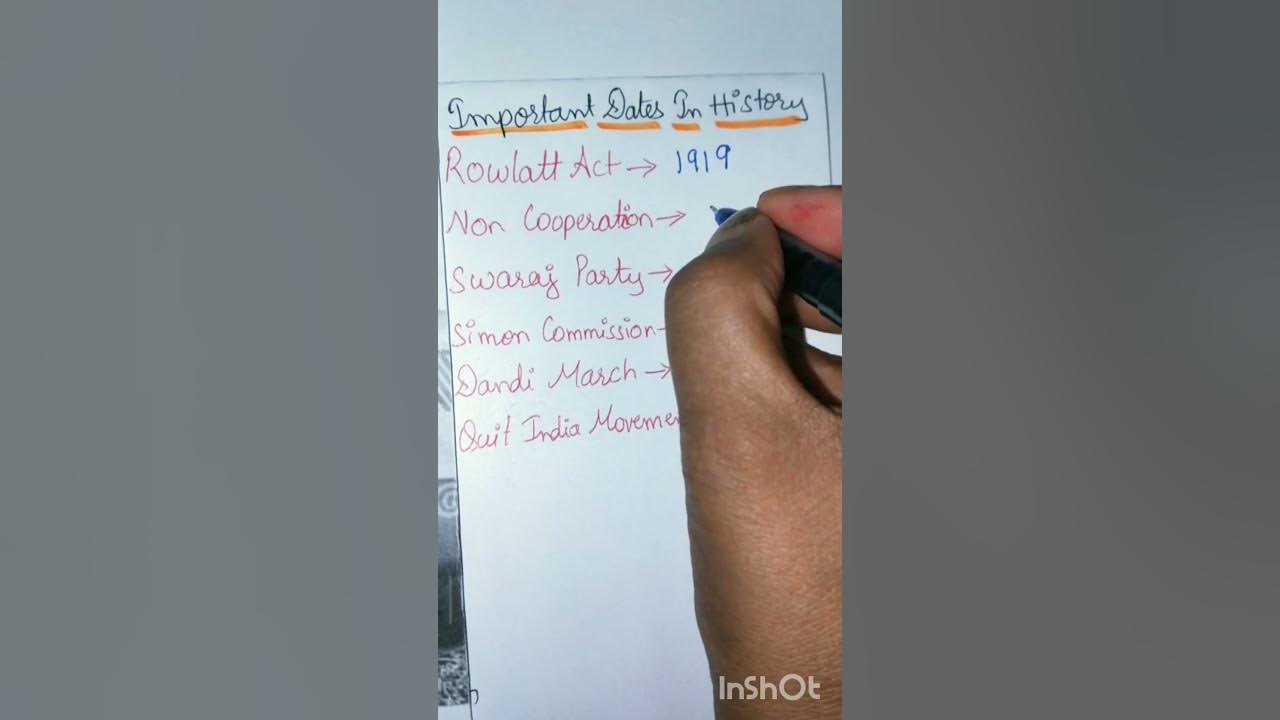 Important Dates In History
Rowlatt Act → 1919
Non Cooperation →
Swaraj Party →
Simon Commission-
Dandi March →
Quit India Movemen
InShOt